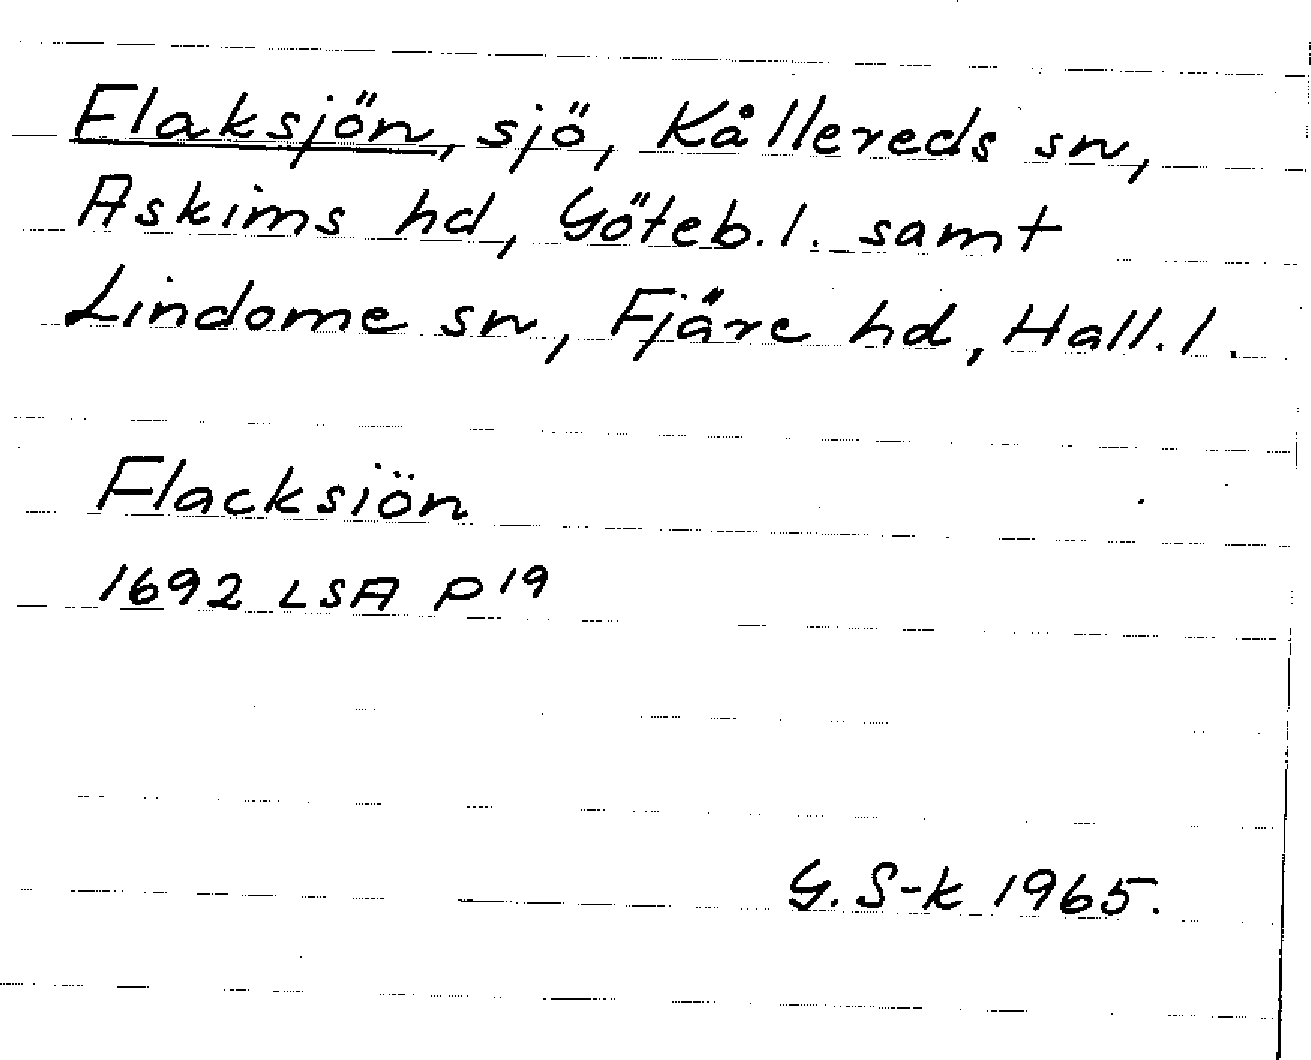 Flaksjön, sjö, Kållereds sn,
Askims hd, Göteb.l. samt
Lindome sn, Fjäre hd, Hall.l.
Flacksiön
1692 LSA P19
G. S-k 1965.